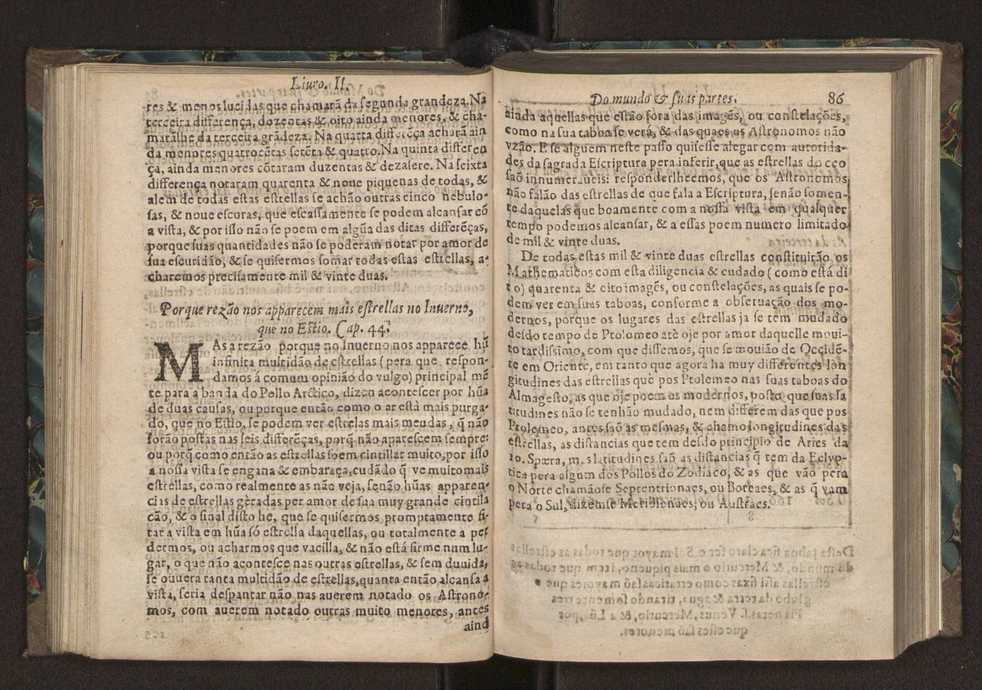 Liuro. II.
res & menos lucidas que chamarã da segunda grandeza. Na
terceira differença, dozentas & oito ainda menores, & cha-
marãlhe da terceira grãdeza. Na quarta differẽça acharã ain
da menores quatrocẽtas setẽta & quatro. Na quinta differen
ça, ainda menores cõtaram duzentas & dezasete. Na seixta
differença notaram quarenta & noue piquenas de todas, &
alem de todas estas estrellas se achão outras cinco nebulo-
sas, & noue escuras, que escassamente se podem alcansar cõ
a vista, & por isso não se poem em algũa das ditas differẽças,
porque suas quantidades não se poderam notar por amor de
sua escuridão, & se quisermos somar todas estas estrellas, a-
charemos precisamente mil & vinte duas.
Porque rezão nos apparecem mais estrellas no Inuerno,
que no Estio. Cap. 44.
MAs a rezão porque no Inuerno nos apparece hũ
infinita multidão de estrellas (pera que respon-
damos á comum opinião do vulgo) principal mẽ
te para a banda do Pollo Arctico, dizen acontescer por hũa
de duas causas, ou porque então como o ar està mais purga-
do, que no Estio, se podem ver estrelas mais meudas, q̃ não
forão postas nas seis differẽças, porq̃ não aparescem sempre:
ou porq̃ como então as estrellas soem cintillar muito, por isso
a nossa vista se engana & embaraça, cuidãdo q̃ ve muitomais
estrellas, como realmente as não veja, senão hũas apparen-
cias de estrellas gèradas per amor de sua muy grande cintila
ção, & o sinal disto he, que se quisermos promptamente fi-
tar a vista em hũa só estrella daquellas, ou totalmente a per
dermos, ou acharmos que vacilla, & não está firme num lu-
gar, o que não acontesce nas outras estrellas, & sem duuida,
se ouuera tanta multidão de estrellas, quanta então alcansa a
vista, seria despantar não nas auerem notado os Astrono-
mos, com auerem notado outras muito menores, antes
aind
Do mundo & suas partes. 86
ainda aquellas que estão fóra das imagẽs, ou constelações,
como na sua taboa se verà, & das quaes os Astronomos não
vzão. E se alguem neste passo quisesse alegar com autorida-
des da sagrada Escriptura pera inferir, que as estrellas do ceo
saõ innumeraueis: responderlheemos, que os Astronomos
não falão das estrellas de que fala a Escriptura, senão somen-
te daquelas que boamente com a nossa vista em qualquer
tempo podemos alcansar, & a essas poem numero limitado
de mil & vinte duas.
De todas estas mil & vinte duas estrellas constituirão os
Mathematicos com esta diligencia & cudado (como está di
to) quarenta & oito imagẽs, ou constelações, as quais se po-
dem ver em suas taboas, conforme a obseruação dos mo-
dernos, porque os lugares das estrellas ja se tem mudado
desdo tempo de Ptolomeo atè oje por amor daquelle moui-
to tardissimo, com que dissemos, que se mouião de Occidẽ-
te em Oriente, em tanto que agora ha muy differentes lon
gitudines das estrellas que pos Ptolemeo nas suas taboas do
Almagesto, as que oje poem os modernos, posto que suas la
titudines não se tenhão mudado, nem differem das que pos
Ptolemeo, antes saõ as mesmas, & chemo longitudines das
estrellas, as distancias que tem desdo principio de Aries da
10. Spæra, mas latitudines saõ as distancias q̃ tem da Eclyp-
tica pera algum dos Pollos do Zodiaco, & as que vão pera
o Norte chamãose Septentrionaes, ou Boreaes, & as q̃ vam
pera o Sul, dizemse Meridionaes, ou Austraes.